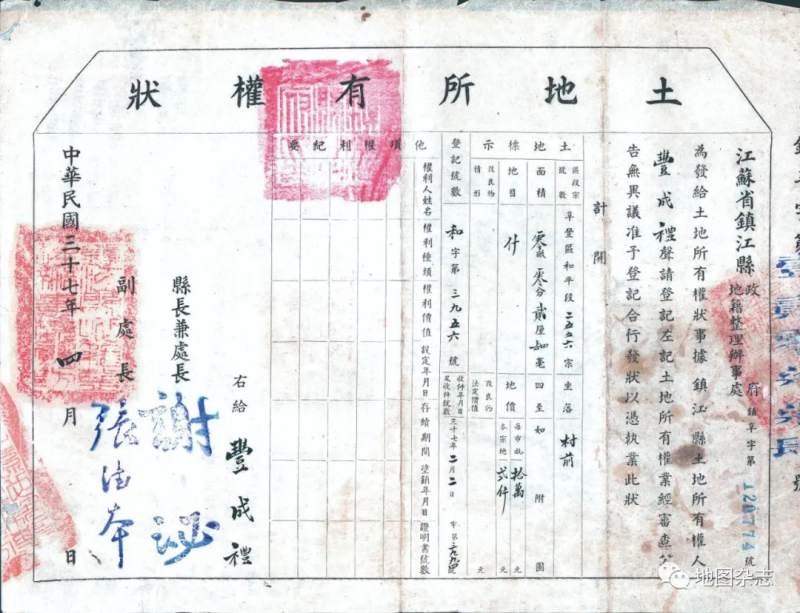 土地所有權狀
江蘇省鎮江縣政府
地籍整理辦事處
鎮阜字第120774號
為發給土地所有權狀事據鎮江縣土地所有權人
豐成禮聲請登記左記土地所有權業經審查
告無異議准予登記合行發狀以憑執業此狀
計開
土地標示
區段宗號數
阜豐區和平段二五五六宗坐落村前
面積
零畝零分貳厘如毫四至如附圖
地目
什
地價
每市畝拾萬元
本宗地弍仟元
改良物情形
改良物法定價值
元
登記號數
和字第三九五六號
收件年月日及收件號數
三十七年二月二日
字第
他項權利紀要
權利人姓名
權利種類
權利價值
設定年月日
存續期間
塗銷年月日
證明書號數
右給豐成禮
縣長兼處長
謝泌
副處長
張
中華民國三十七年四月 日
地图杂志